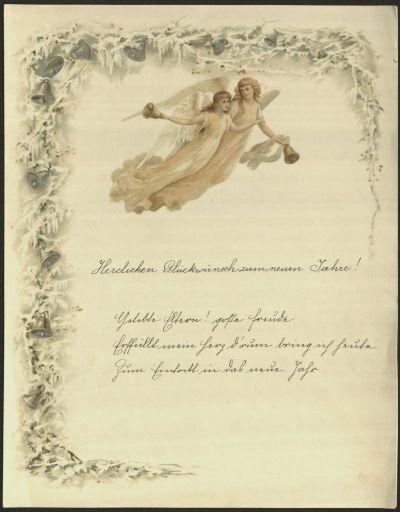 Herclichen Glückwünsch zum neuen Jahre!
Gelibte Eltern! große Freude
Erffüllt mein Herz d'rum bring ich heute
Zum Eintritt in das neue Jahr